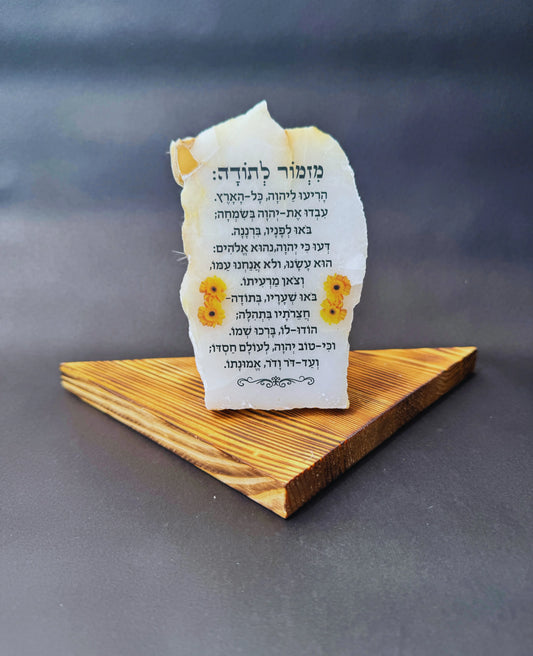 מִזְמוֹר לְתוֹדָה:
הָרִיעוּ לַיהוָה, כָּל-הָאָרֶץ.
עִבְדוּ אֶת-יְהוָה בְּשִׂמְחָה;
בֹּאוּ לְפָנָיו, בִּרְנָנָה.
דְּעוּ כִּי יְהוָה,נהוּא אֱלֹהִים:
הוּא עָשָׂנוּ, ולא אֲנַחְנוּ עַמּוֹ,
וְצֹאן מַרְעִיתוֹ.
בֹּאוּ שְׁעָרָיו, בְּתוֹדָה-
חֲצֵרֹתָיו בִּתְהִלָּה;
הוֹדוּ-לוֹ, בָּרְכוּ שְׁמוֹ.
וּכִּי-טוֹב יְהוָה, לְעוֹלָם חַסְדּוֹ;
וְעַד-דֹּר וָדֹר, אֱמוּנָתוֹ.